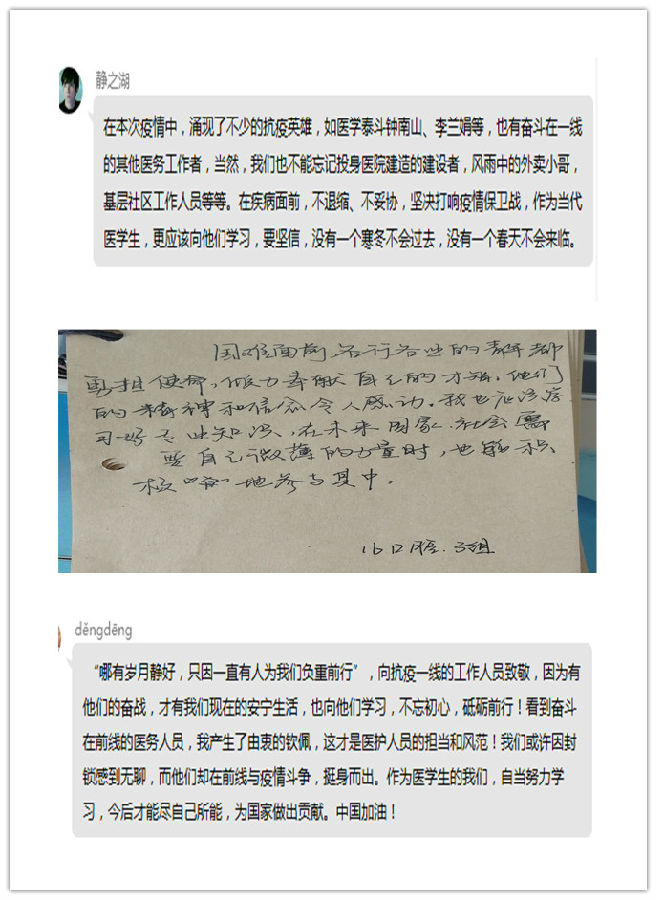 静之湖
在本次疫情中，涌现了不少的抗疫英雄，如医学泰斗钟南山、李兰娟等，也有奋斗在一线
的其他医务工作者，当然，我们也不能忘记投身医院建造的建设者，风雨中的外卖小哥，
基层社区工作人员等等。在疾病面前，不退缩、不妥协，坚决打响疫情保卫战，作为当代
医学生，更应该向他们学习，要坚信，没有一个寒冬不会过去，没有一个春天不会来临。
国难面前，各行各业的群都
勇担使命，倾力奉献自己的才智。他们
的精神和信念令人感动。我也应该学
习好专业知识，在未来国家、社会需
要自己微薄的力量时，也能积
极"战"地参与其中.
16口腔.3组
děngdēng
“哪有岁月静好，只因一直有人为我们负重前行”，向抗疫一线的工作人员致敬，因为有
他们的奋战，才有我们现在的安宁生活，也向他们学习，不忘初心，砥砺前行！看到奋斗
在前线的医务人员，我产生了由衷的钦佩，这才是医护人员的担当和风范！我们或许因封
锁感到无聊，而他们却在前线与疫情斗争，挺身而出。作为医学生的我们，自当努力学
习，今后才能尽自己所能，为国家做出贡献。中国加油！